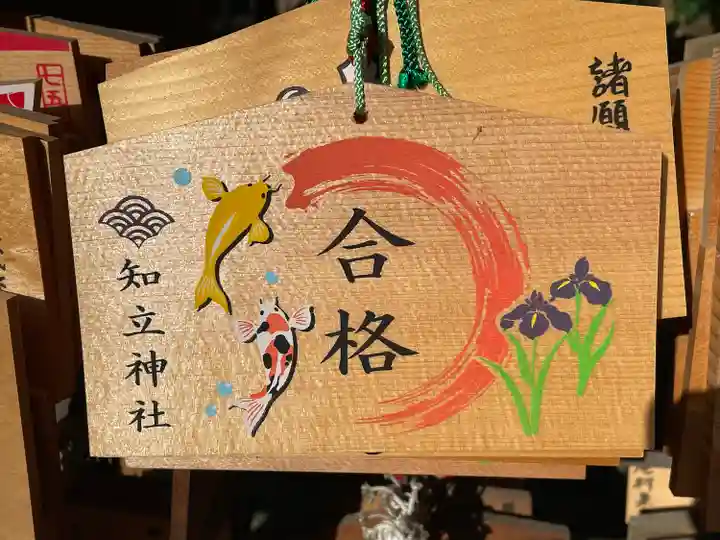 合格
知立神社
諸願
七五